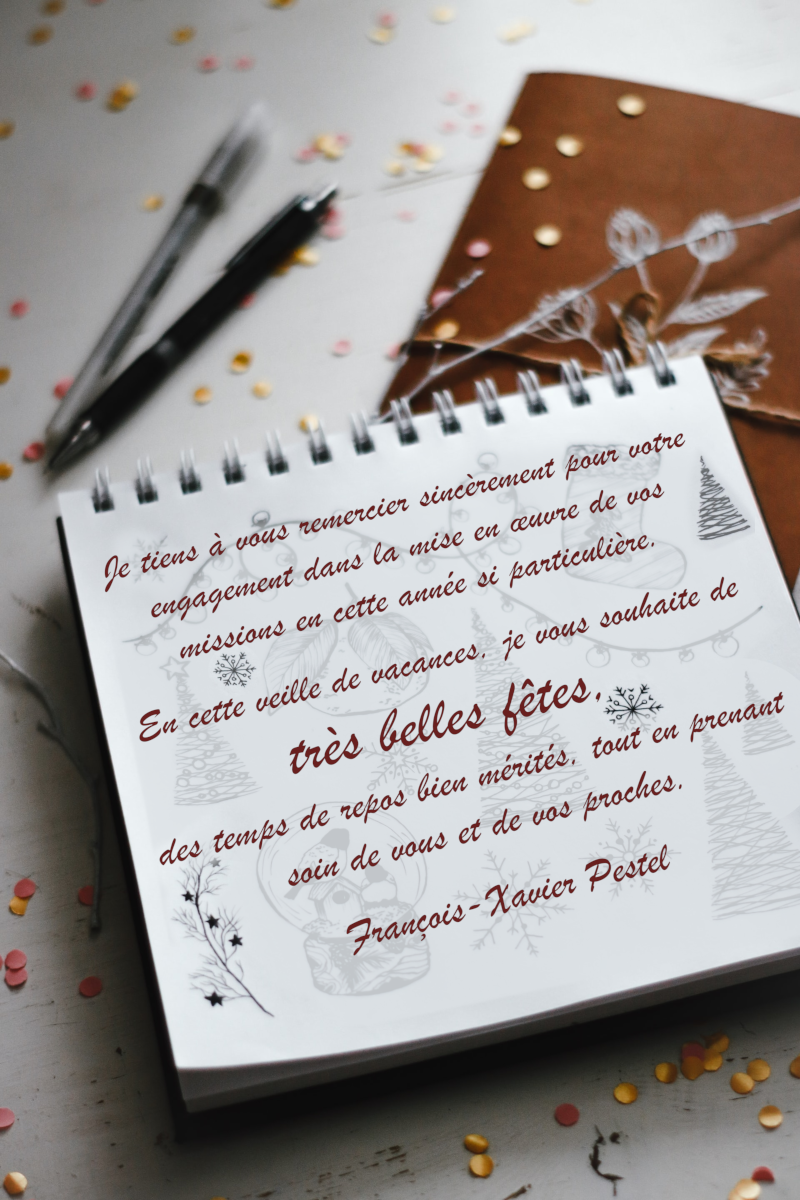 Je tiens à vous remercier sincèrement pour votre
engagement dans la mise en œuvre de vos
missions en cette année si particulière.
En cette veille de vacances, je vous souhaite de
très belles fêtes,
des temps de repos bien mérités, tout en prenant
soin de vous et de vos proches.
François-Xavier Pestel